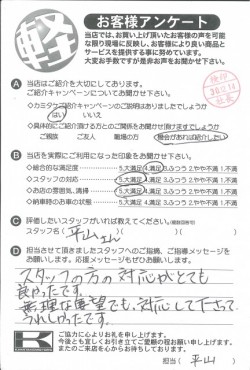 軽
お客様アンケート
当店では、お買い上げ頂いたお客様の声を可能な限り現場に反映し、お客様により良い商品と
サービスを提供する事に努めています。
大変お手数ですが是非お声をお聞かせ下さい。
検印
30.12.14
社長
A 当店はご紹介を大切にしております。
ご紹介キャンペーンについてお聞かせ下さい。
◇カミタケご紹介キャンペーンのご説明はありましたでしょうか
はい いいえ
◇具体的にご紹介頂ける方とのご関係をお聞かせ頂けますでしょうか
ご親族 ご友人 職場の方 機会があれば紹介したい
B 当店を実際にご利用になった印象をお聞かせ下さい。
◇総合的な満足度 5.大満足 4.満足 3.ふつう 2.やや不満 1.不満
◇スタッフの対応 5.大満足 4.満足 3.ふつう 2.やや不満 1.不満
◇お店の雰囲気、清掃 5.大満足 4.満足 3.ふつう 2.やや不満 1.不満
◇納車時のお車の状態 5.大満足 4.満足 3.ふつう 2.やや不満 1.不満
C 評価したいスタッフがいれば教えてください。(複数回答可)
スタッフ名( 平山さん )
D 担当させて頂きましたスタッフへのご指摘、ご指導メッセージを
お願いします。応援メッセージもぜひお願いします!
スタッフの方の対応がとても
良かったです。
無理な要望でも、対応して下さって
うれしかったです。
ご協力に心よりお礼を申し上げます。
今後とも宜しくお引き立てご愛顧の程お願い申し上げます。
またのご来店を心からお待ちしております。
担当( 平山 )